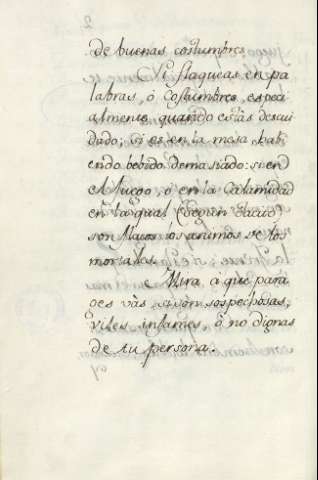 2
de buenas costumbres
Vi flaqueas en pa
labras, ó Costumbres, especi
almente, quando estás descui
dado; si es en la mesa, hab
endo bebido demasiado: si en
el Juego, ó en la Calamidad
en la qual (segun Tacito)
son los animos de los
mortales.
Mira, á que para
ges vàs, si son sospechosas,
viles, infames, ó no dignas
de tu persona.